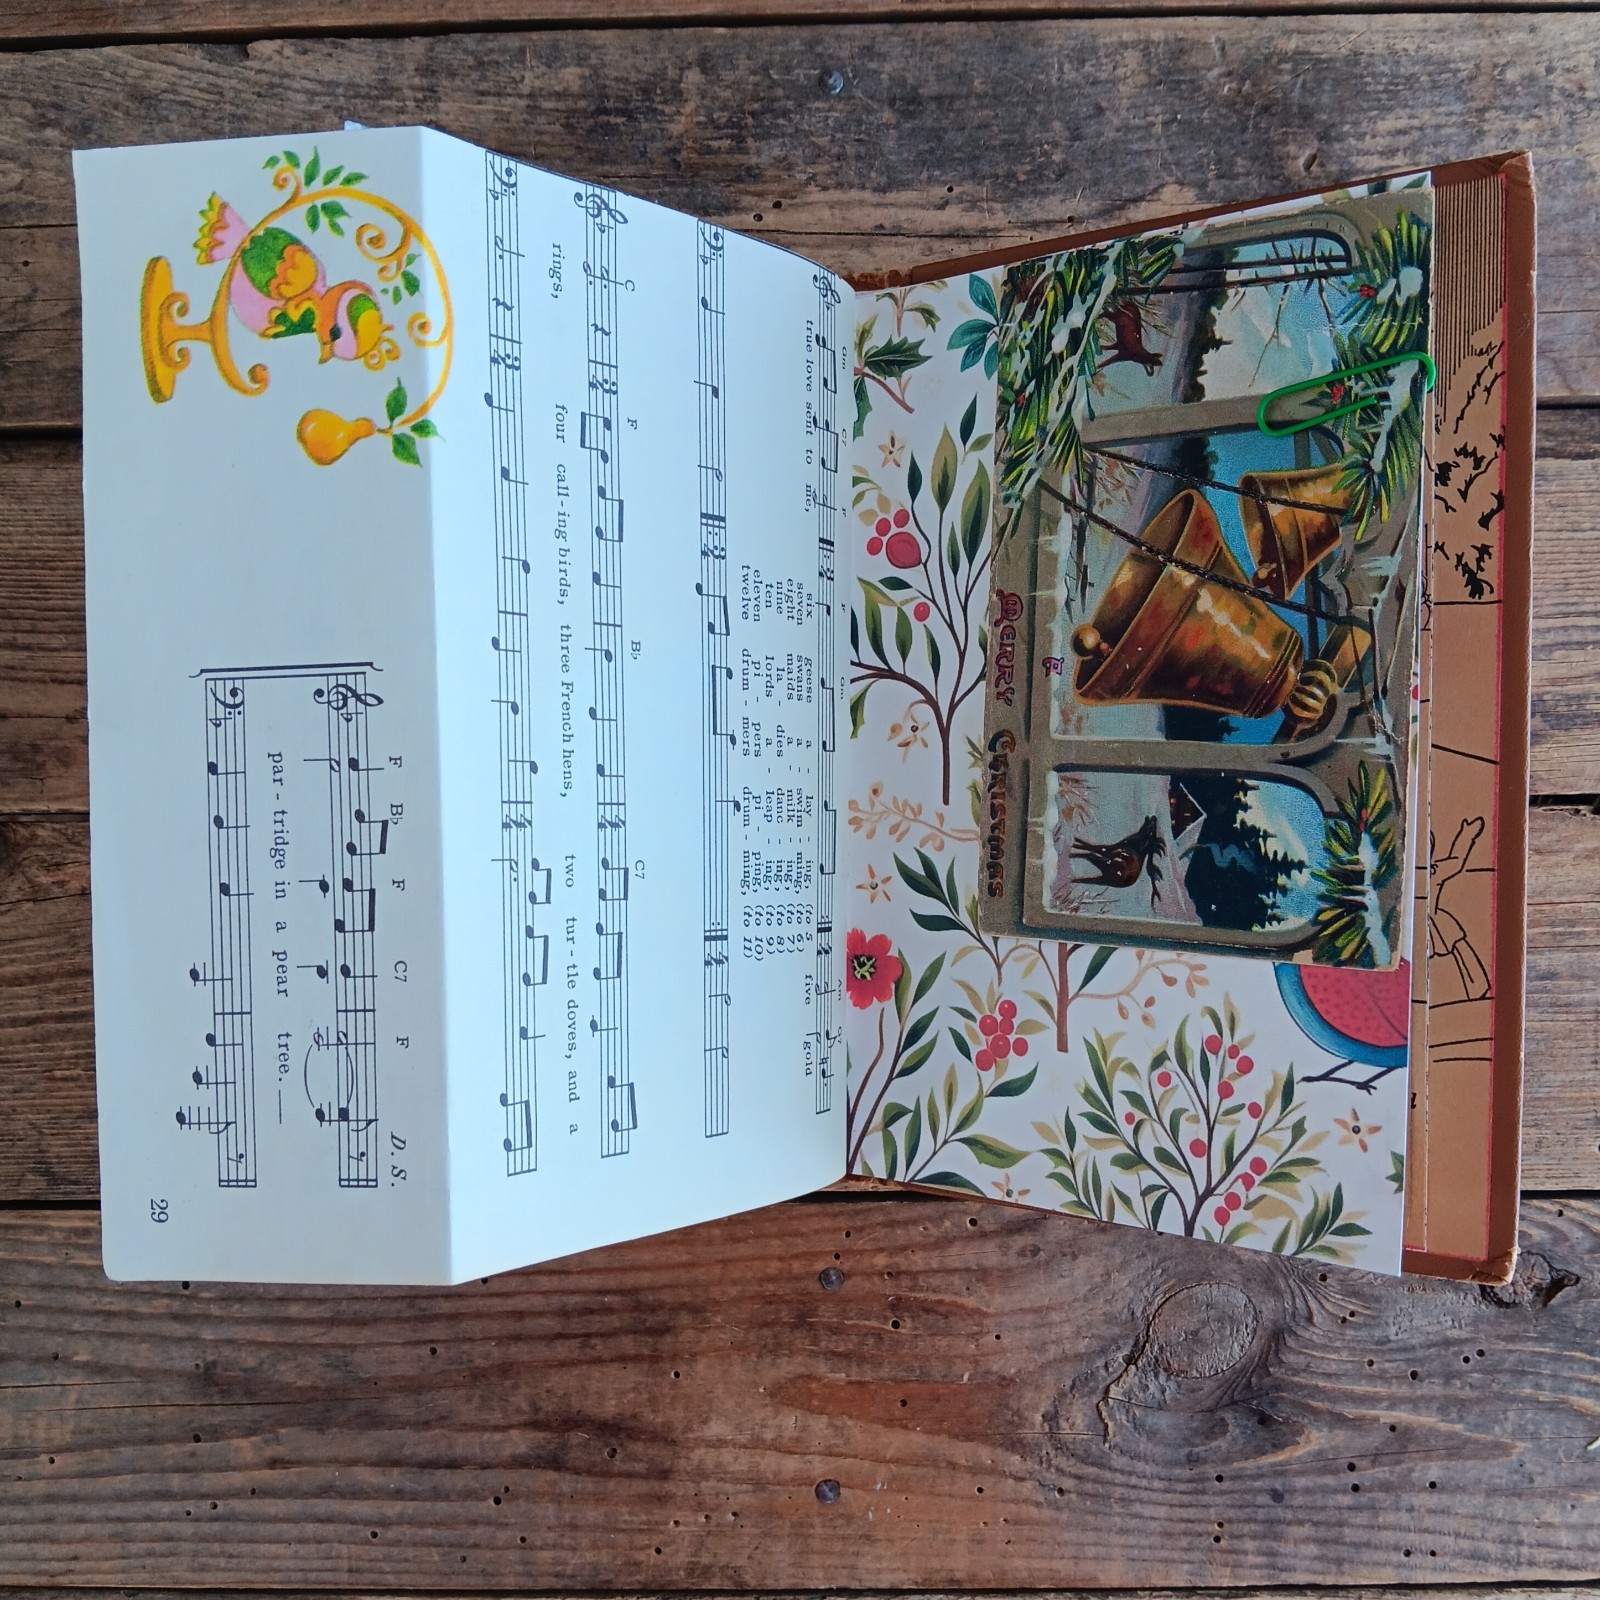 Gm C7 F F Gm Am G7
true love sent to me,
six geese a - lay - ing, (to 5)
seven swans a - swim - ming, (to 6)
eight maids - a - milk - ing, (to 7)
nine la - dies danc - ing, (to 8)
ten lords - a - leap - ing, (to 9)
eleven pi - pers pi - ping, (to 10)
twelve drum - mers drum - ming, (to 11)
five gold
C F B♭ C7
rings, four call - ing birds, three French hens, two tur - tle doves, and a
F B♭ F C7 F D. S.
par - tridge in a pear tree.
29
A
MERRY CHRISTMAS